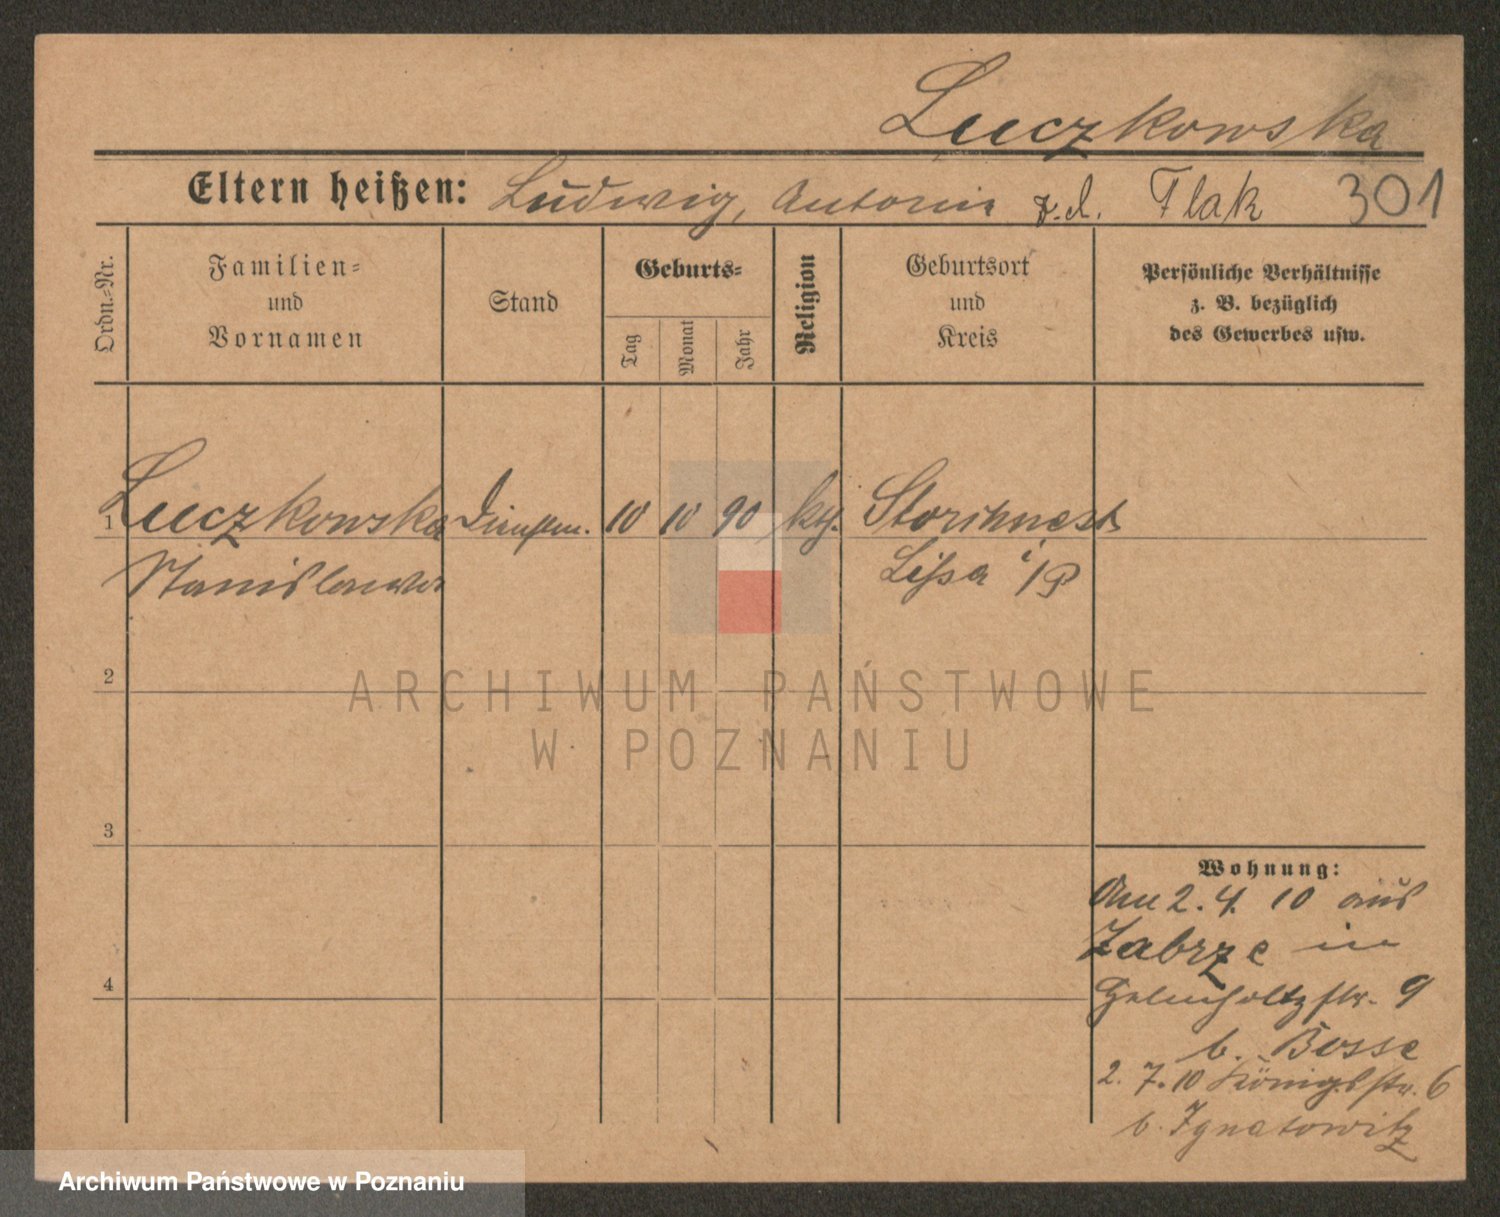 Luczkowska
Eltern heißen: Ludwig, Antonie Flak 301
Ordn.-Nr.
Familien-
und
Vornamen
Stand
Geburts-
Tag
Monat
Jahr
Religion
Geburtsort
und
Kreis
Persönliche Verhältnisse
z. B. bezüglich
des Gewerbes usw.
1 Luczkowska 10 10 90 Storchnest
Stanislawa Lissa i/P
2
ARCHIWUM PAŃSTWOWE
W POZNANIU
3
Wohnung:
Am 2. 4. 10 aus
Zabrze in
4
Helmholtzstr. 9
b. Bosse
2. 7. 10 Königstr. 6
b. Ignatowitz
Archiwum Państwowe w Poznaniu